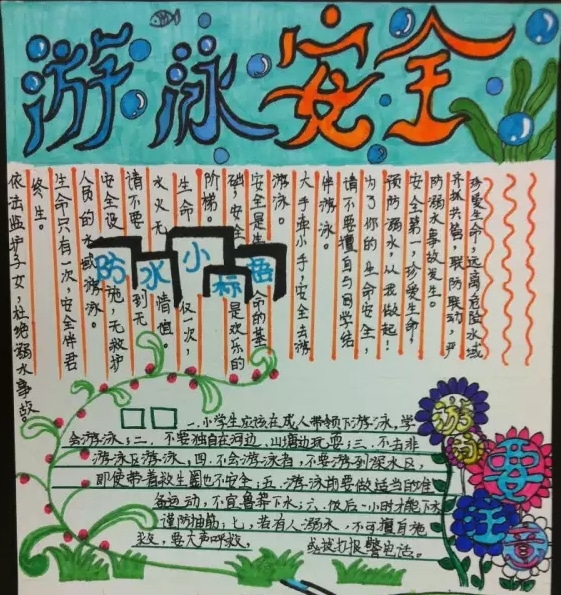 游泳安全
珍爱生命，远离危险水域
齐抓共管，联防联动，严
防溺水事故发生。
安全第一，珍爱生命，
预防溺水，从我做起！
为了你的生命安全，
请不要擅自与同学结
伴游泳。
大手牵小手，安全去游
游泳。
安全是生命的基
础，安全是欢乐的
阶梯。
生命仅一次，
水火无情值。
请不要到无
安全设施，无救护
人员的水域游泳。
生命只有一次，安全伴君
终生。
依法监护子女，杜绝溺水事故。
防水小标语
一，小学生应该在成人带领下游泳，学
会游泳；二，不要独自在河边、山塘边玩耍；三，不去非
游泳区游泳；四，不会游泳者，不要游到深水区，
即使带着救生圈也不安全；五，游泳前要做适当的准
备运动，不宜鲁莽下水；六，饭后一小时才能下水
谨防抽筋；七，若有人溺水，不可擅自施
救，要大声呼救，或拨打报警电话。
要
注
意